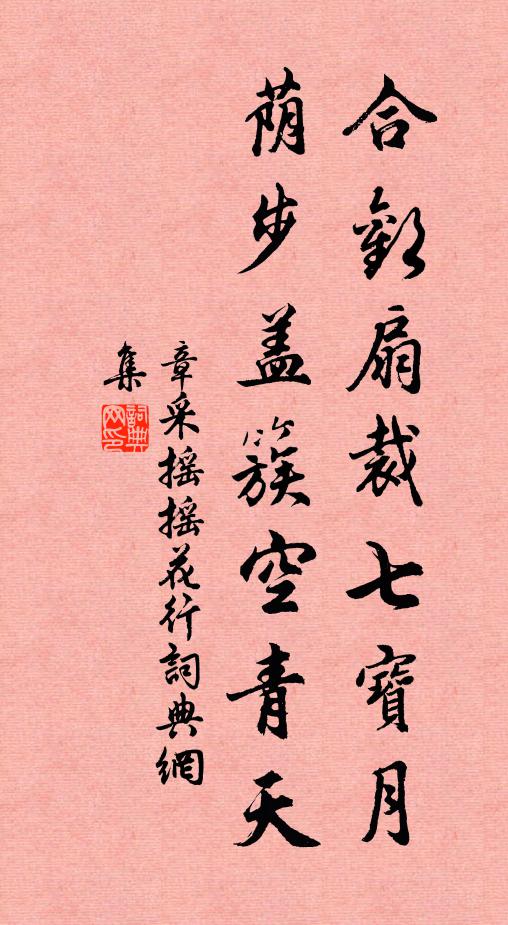 合歡扇裁七寶月
荫步盖簇空青天
章采摇摇花行詞典網
集
詞典網印